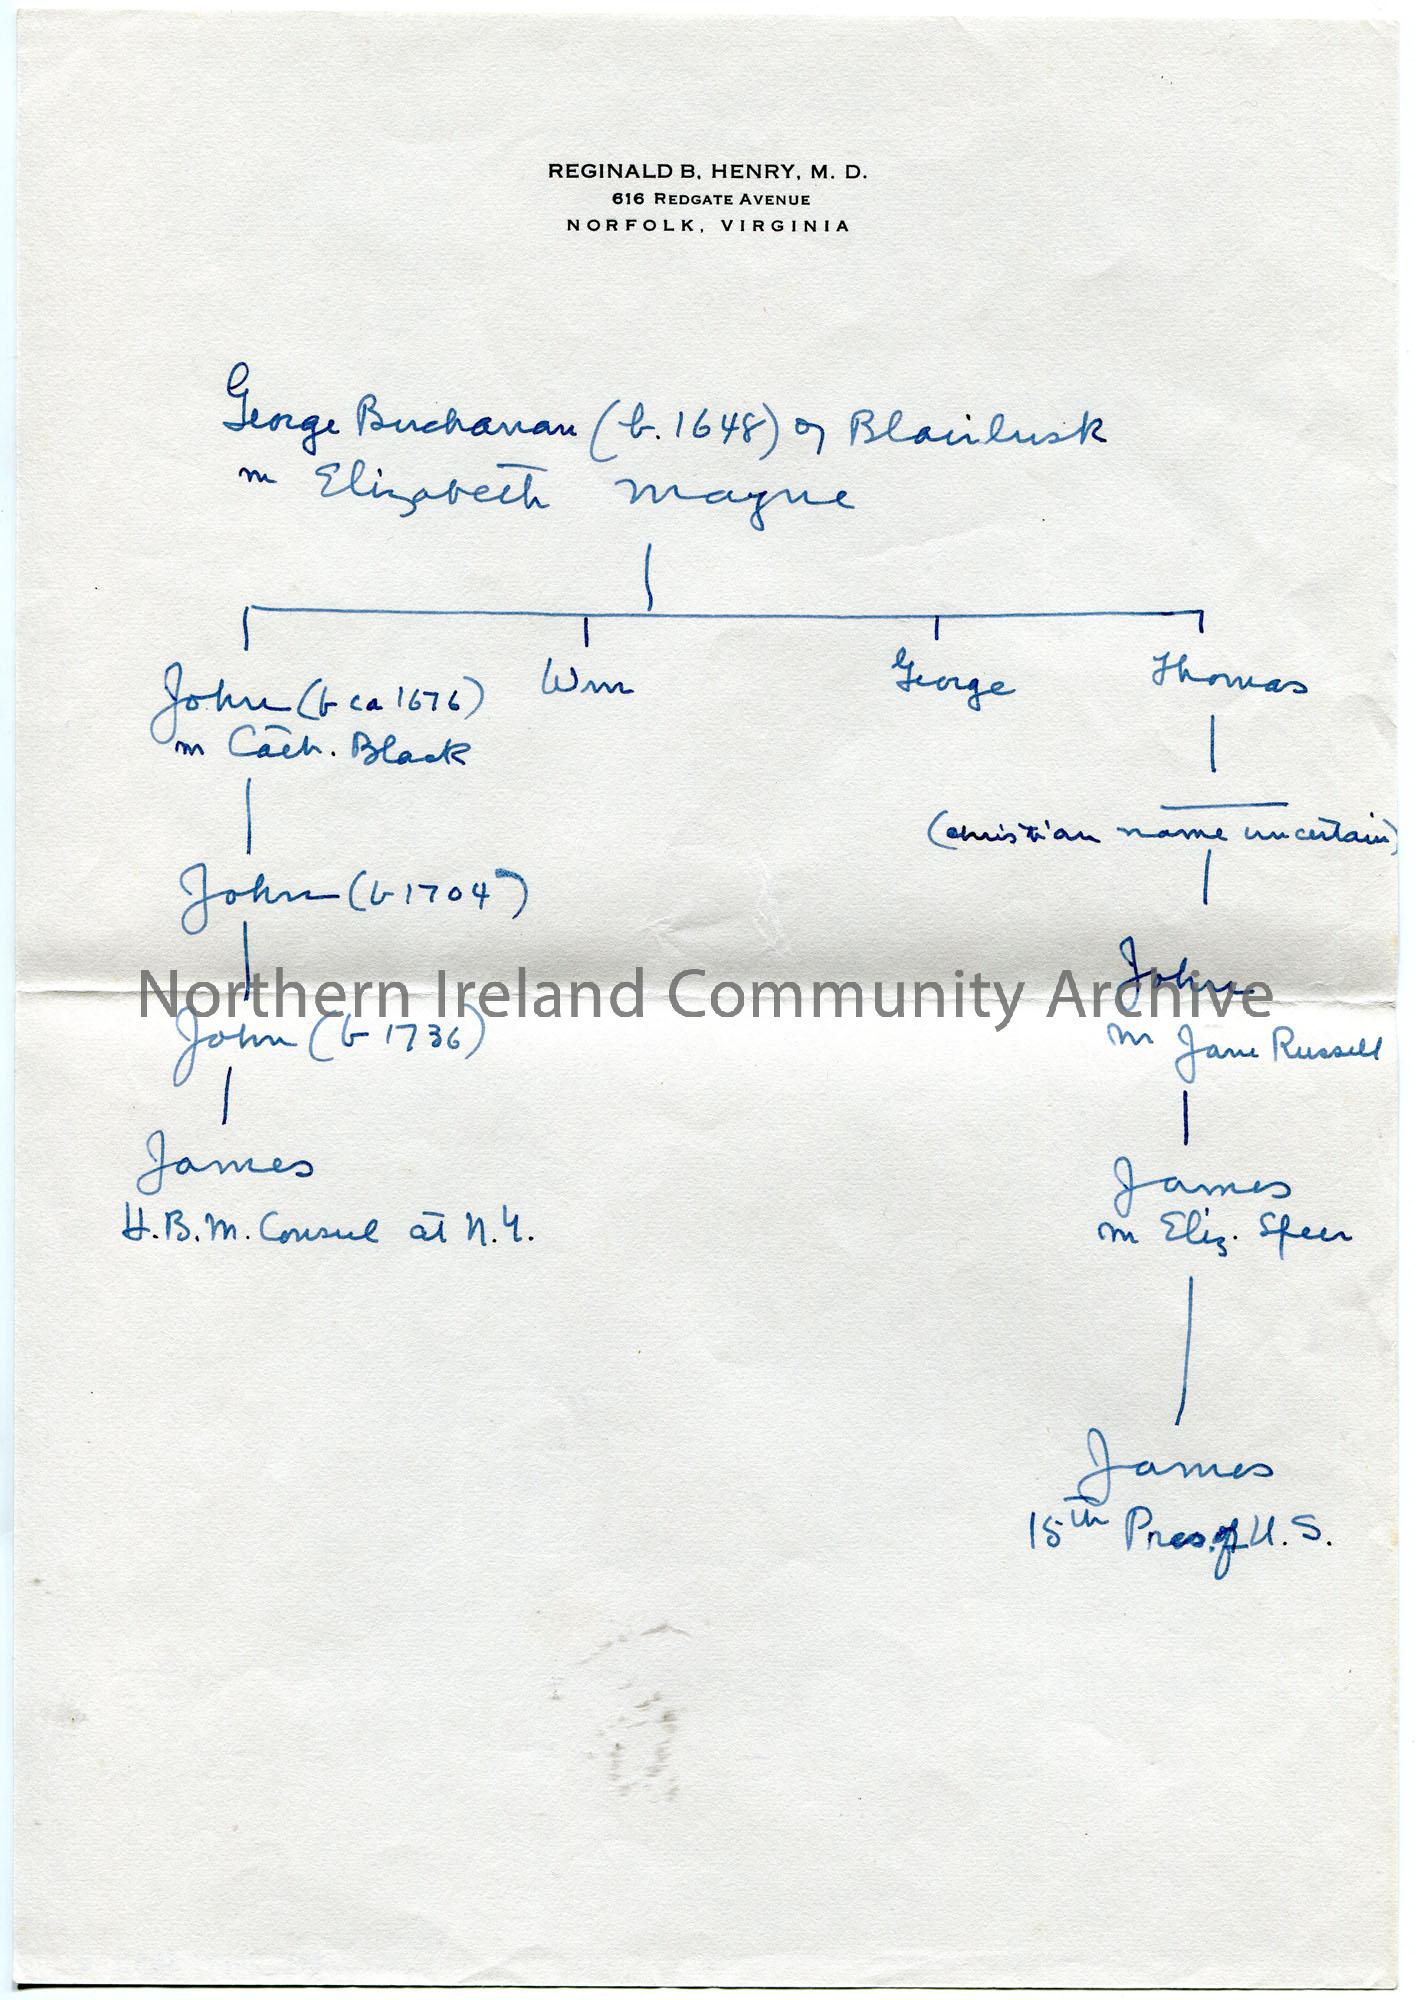 REGINALD B. HENRY, M. D.
616 REDGATE AVENUE
NORFOLK, VIRGINIA
George Buchanan (b. 1648) of Blairlusk
m Elizabeth Mayne
John (b ca 1676)
m Cath. Black
Wm
George
Thomas
(christian name uncertain)
John (b 1704)
John
m Jane Russell
Northern Ireland Community Archive
John (b 1736)
James
H.B.M. Consul at N.Y.
James
m Eliz. Speer
James
15th Pres. of U.S.